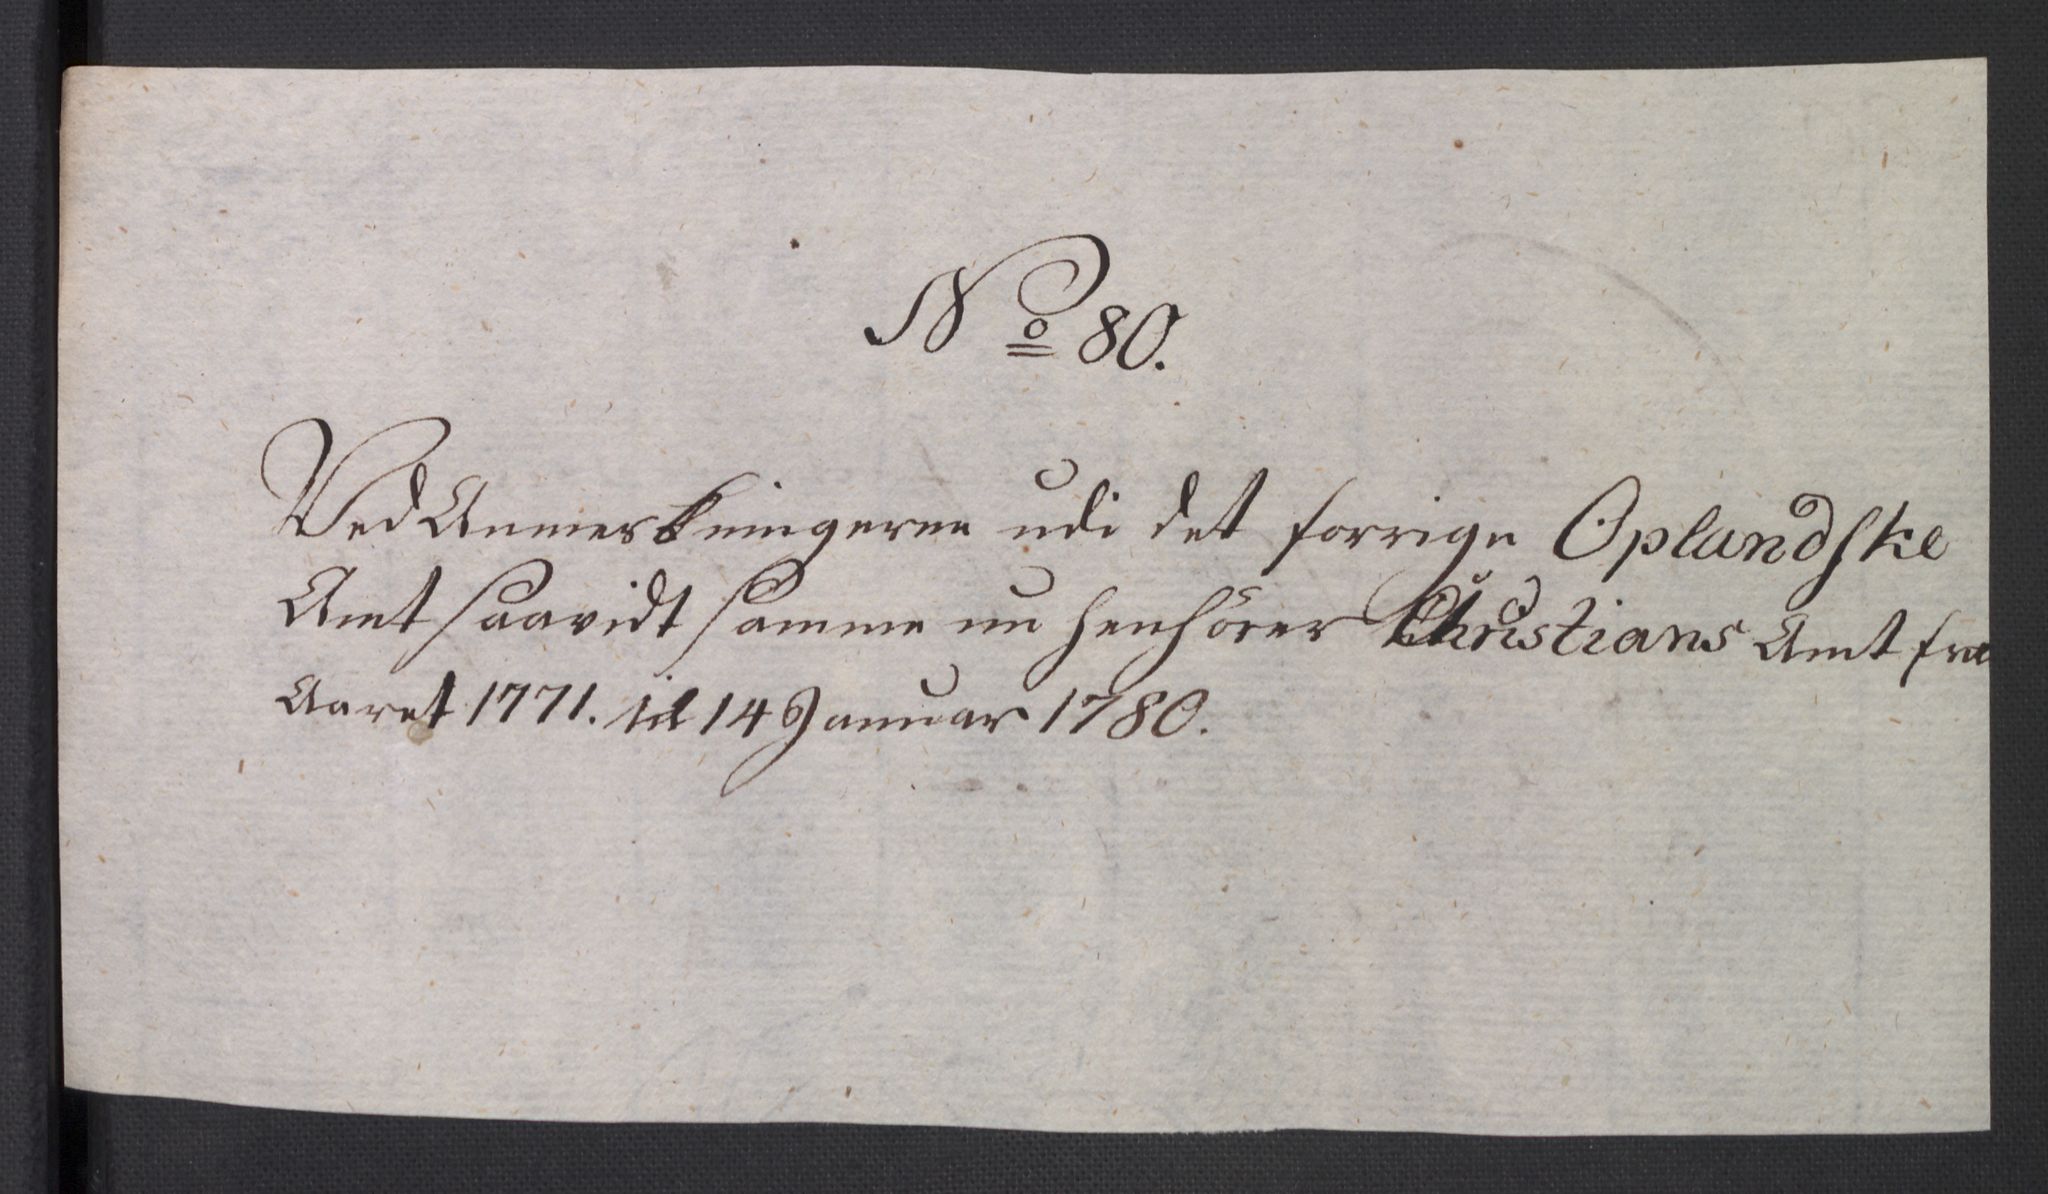 No 80.
Ved Anmerkningerne udi det forrige Oplandske
Amt saavidt samme nu henhörer Christians Amt fra
Aaret 1771. til 14 Januar 1780.